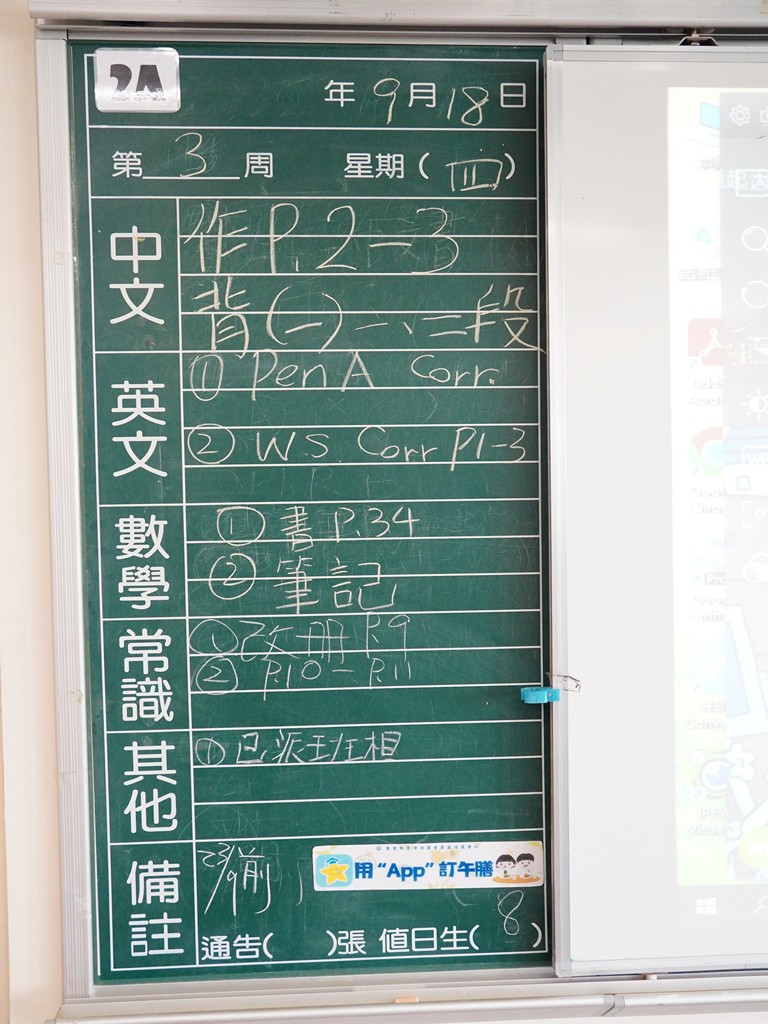 2A
年 9 月 18 日
第 3 周 星期 ( 四 )
中文
作 P.2-3
背(一)一、二段
英文
① Pen A Corr.
② W.S. Corr P1-3
數學
① 書 P.34
② 筆記
常識
① 改冊 P.9
② P.10 - P.11
其他
① 已派班相
備註
23/9前
用“App”訂午膳
通告( )張 值日生( 8 )